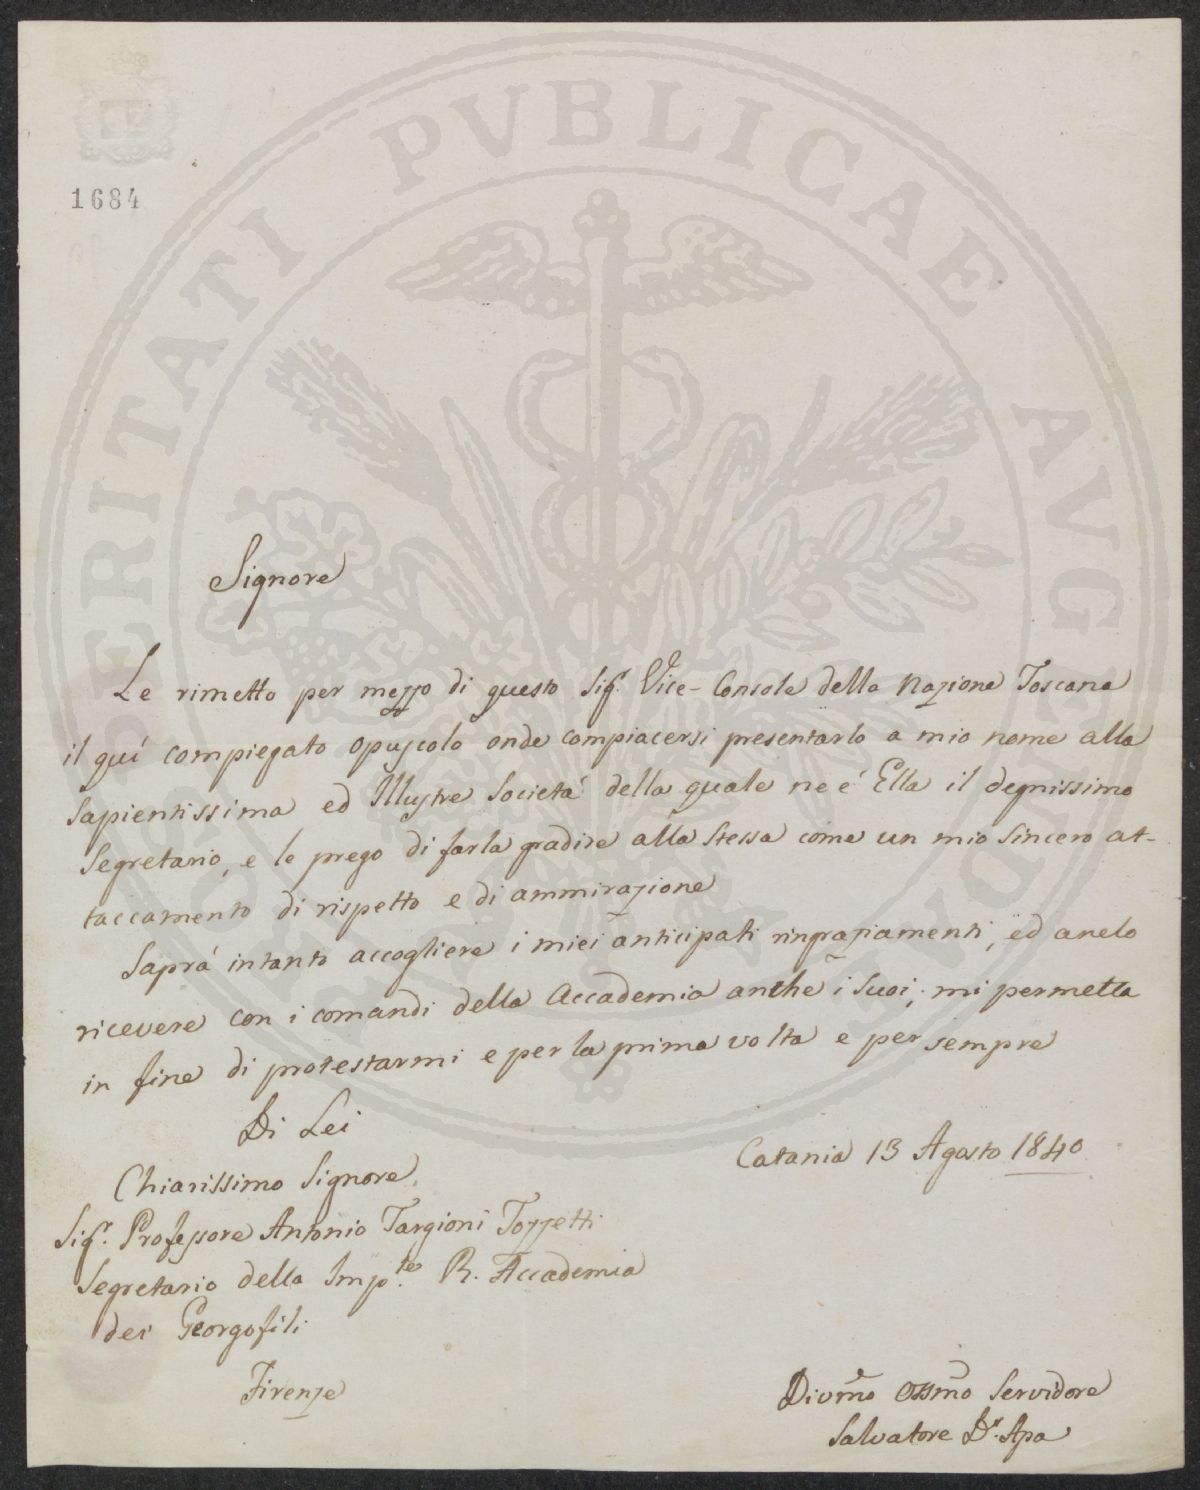 PROSPERITATI PVBLICAE AVGENDAE
1684
Signore
Le rimetto per mezzo di questo Sig.r Vice-Console della Nazione Toscana
il quí compiegato opuscolo onde compiacersi presentarlo a mio nome alla
Sapientissima ed Illustre Societá della quale ne é Ella il degnissimo
Segretario, e le prego di farla gradire alla Stessa come un mio Sincero at-
taccamento di rispetto e di ammirazione
Saprá intanto accogliere i miei anticipati ringraziamenti, ed anelo
ricevere con i comandi della Accademia anche i Suoi; mi permetta
in fine di protestarmi e per la prima volta e per sempre
Di Lei
Catania 13 Agosto 1840
Chiarissimo Signore
Sig.r Professore Antonio Targioni Tozzetti
Segretario della Imp.le R. Accademia
dei Georgofili
Firenze
Divmo Ossmo Servidore
Salvatore Dr. Apa